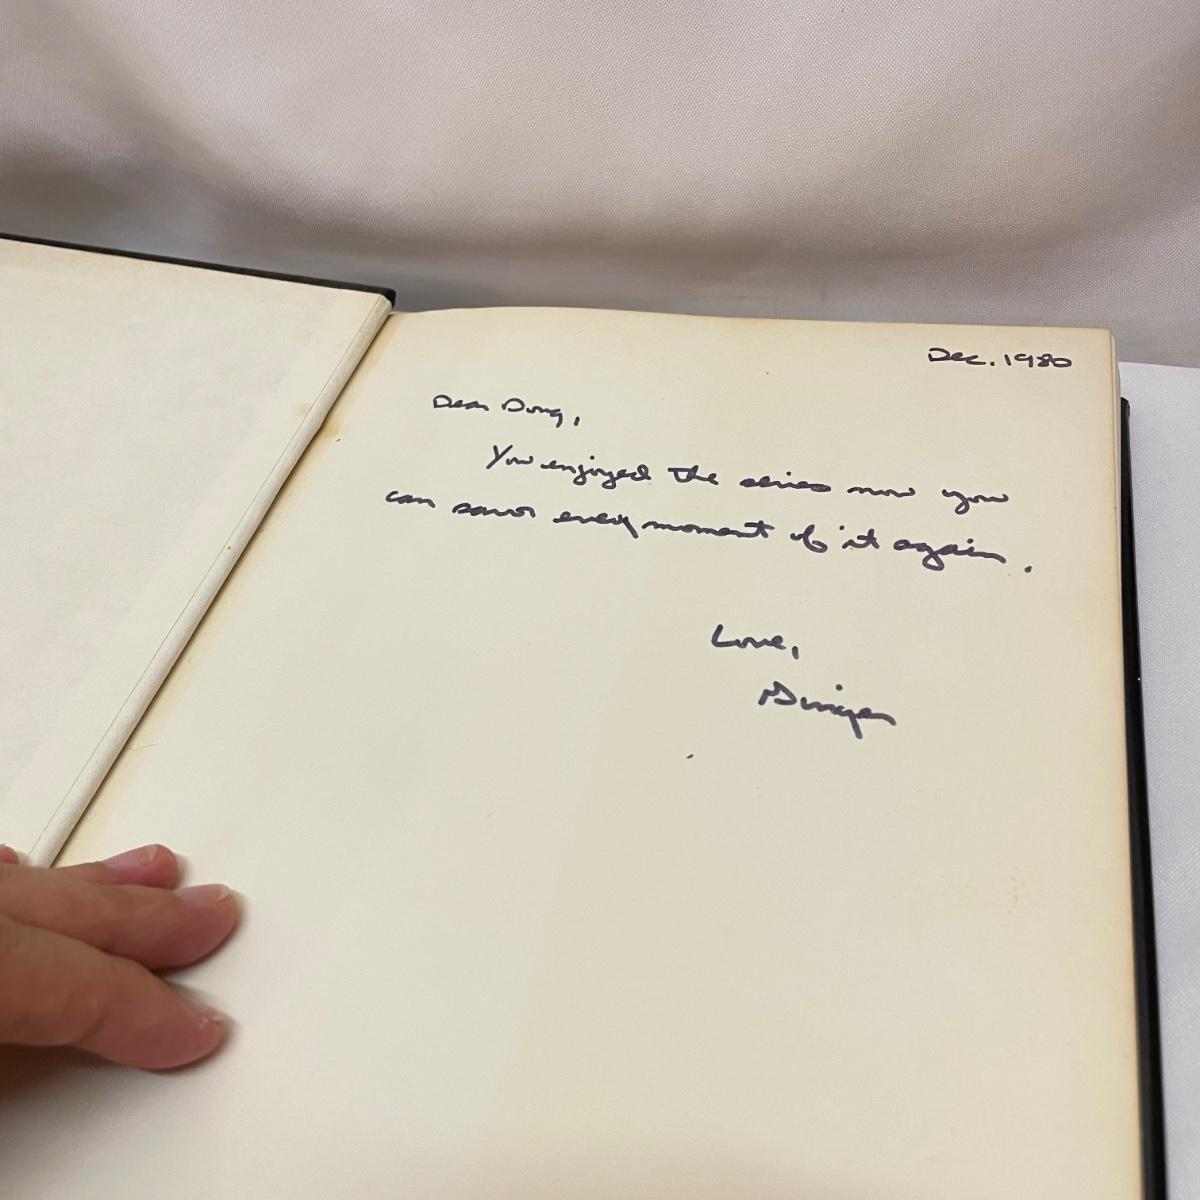 Dec. 1980
Dear Doug,
You enjoyed the series now you
can savor every moment of it again.
Love,
Ginger